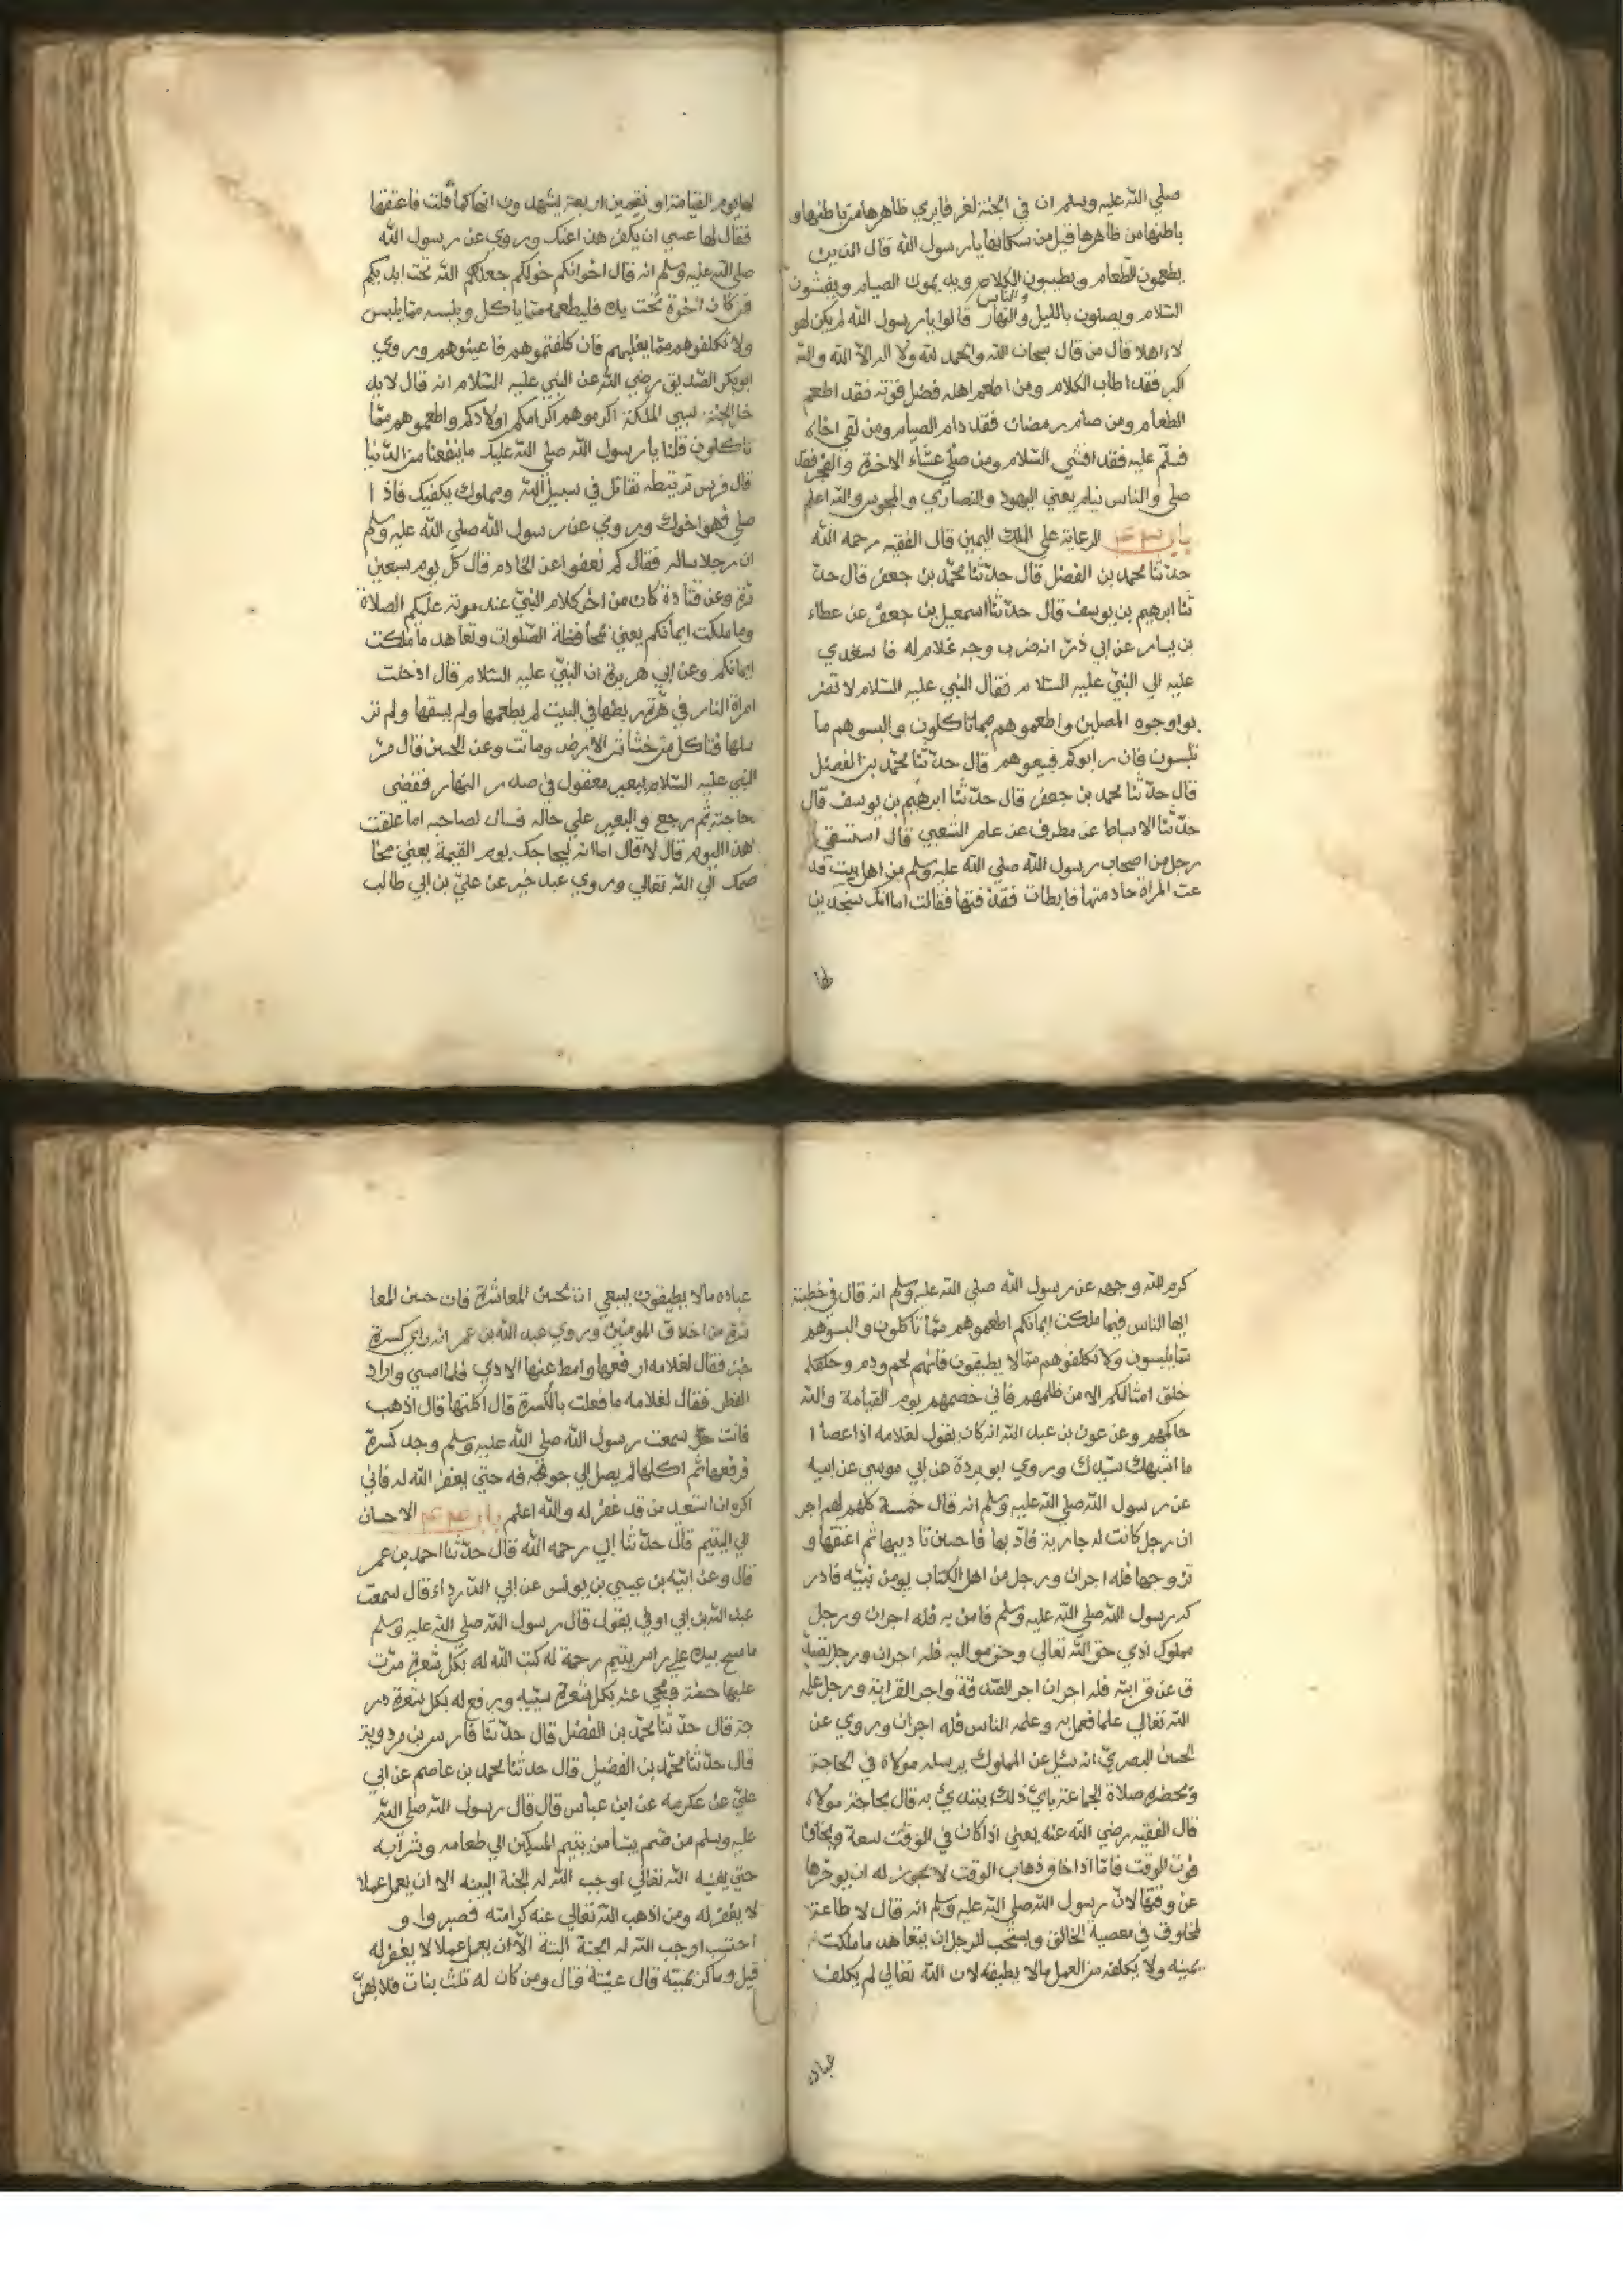 صلي الله عليه وسلم ان في الجنة لغرفا يري ظاهرها من باطنها و
باطنها من ظاهرها قيل من سكانها يا رسول الله قال الذين
يطعمون الطعام ويطيبون الكلام ويديمون الصيام ويفشون
والناس
السلام ويصلون بالليل والنهار قالوا يا رسول الله لم يكن لهو
لاء اهلا قال من قال سبحان الله والحمد لله ولا اله الا الله والله
اكبر فقد اطاب الكلام ومن اطعم اهله فضل قوته فقد اطعم
الطعام ومن صام رمضان فقد دام الصيام ومن لقي اخاه
فسلم عليه فقد افشي السلام ومن صلي عشاء الاخرة والفجر فقد
صلي والناس نيام يعني اليهود والنصاري والمجوس والله اعلم
الرعاية علي الملك اليمين قال الفقيه رحمه الله
حدثنا محمد بن الفضل قال حدثنا محمد بن جعفر قال حد
ثنا ابرهيم بن يوسف قال حدثنا اسمعيل بن جعفر عن عطاء
بن يسار عن ابي ذر انه ضرب وجه غلام له فاستعدي
عليه الي النبي عليه السلام فقال النبي عليه السلام لا تضر
بوا وجوه المصلين واطعموهم مما تاكلون والبسوهم ما
تلبسون فان رابوكم فبيعوهم قال حدثنا محمد بن الفضل
قال حدثنا محمد بن جعفر قال حدثنا ابرهيم بن يوسف قال
حدثنا الاسباط عن مطرف عن عامر الشعبي قال استسقي
رجل من اصحاب رسول الله صلي الله عليه وسلم من اهل بيت فد
عت المراة خادمتها فابطات فقذفتها فقالت اما انك ستجدين
لها يوم القيامة او تقيمين اربعة يشهدون انها كما قلت فاعتقتها
فقال لها عسي ان يكفر هذا عنك وروي عن رسول الله
صلي الله عليه وسلم انه قال اخوانكم خولكم جعلكم الله تحت ايديكم
فمن كان اخوه تحت يده فليطعمه مما ياكل ويلبسه مما يلبس
ولا تكلفوهم مما يغلبهم فان كلفتموهم فاعينوهم وروي
ابو بكر الصديق رضي الله عن النبي عليه السلام انه قال لا يد
خل الجنة سيي الملكة اكرموهم اكرامكم اولادكم واطعموهم مما
تاكلون قلنا يا رسول الله صلي الله عليك ما ينفعنا من الدنيا
قال فرس تربتطه تقاتل في سبيل الله ومملوك يكفيك فاذا
صلي فهو اخوك وروي عن رسول الله صلي الله عليه وسلم
ان رجلا ساله فقال كم نعفوا عن الخادم قال كل يوم سبعين
مرة وعن قتادة كان من اخر كلام النبي عند موته عليكم الصلاة
وما ملكت ايمانكم يعني محافظة الصلوات وتعاهد ما ملكت
ايمانكم وعن ابي هريرة ان النبي عليه السلام قال ادخلت
امراة النار في هرة ربطها في البيت لم يطعمها ولم يسقها ولم تر
سلها فتاكل من خشاش الارض وماتت وعن الحسن قال مر
النبي عليه السلام ببعير معقول في صدر النهار فقضي
حاجته ثم رجع والبعير علي حاله فسال لصاحبه اما علفت
هذا اليوم قال لا قال اما انه ليحاجك يوم القيمة يعني يخا
صمك الي الله تعالي وروي عبد خير عن علي بن ابي طالب
كرم الله وجهه عن رسول الله صلي الله عليه وسلم انه قال في خطبته
ايها الناس فيما ملكت ايمانكم اطعموهم مما تاكلون والبسوهم
مما يلبسون ولا تكلفوهم مما لا يطيقون فانهم لحم ودم وخلقة
خلق امثالكم الا من ظلمهم فاني خصمهم يوم القيامة والله
حاكمهم وعن عون بن عبد الله انه كان يقول لغلامه اذا عصا ا
ما اشبهك سيدك وروي ابو بردة عن ابي موسي عن ابيه
عن رسول الله صلي الله عليه وسلم انه قال خمسة كلهم لهم اجر
ان رجل كانت له جارية فادبها فاحسن تاديبها ثم اعتقها و
تزوجها فله اجران ورجل من اهل الكتاب يومن نبيه فادر
كه رسول الله صلي الله عليه وسلم فامن به فله اجران ورجل
مملوك ادي حق الله تعالي وحق مواليه فله اجران ورجل تصد
ق عن قرابته فله اجران اجر الصدقة واجر القرابة ورجل علمه
الله تعالي علما فعمل به وعلمه الناس فله اجران وروي عن
الحسن البصري انه سئل عن المملوك يرسله مولاه في الحاجة
وتحضره صلاة الجماعة باي ذلك يبتدي به قال بحاجة مولاه
قال الفقيه رضي الله عنه يعني اذا كان في الوقت سعة ويخاف
فوت الوقت فاما اذا خاف ذهاب الوقت لا يجوز له ان يوخرها
عن وقتها لان رسول الله صلي الله عليه وسلم انه قال لا طاعة
لمخلوق في معصية الخالق ويستحب للرجل ان يتعاهد ما ملكت
يمينه ولا يكلفه من العمل مالا يطيقه لان الله تعالي لم يكلف
عباده
عباده مالا يطيقون ينبغي ان يحسن المعاشرة فان حسن المعا
شرة من اخلاق المومنين وروي عبد الله بن عمر انه راي كسرة
خبز فقال لغلامه ارفعها وامط عنها الاذي فلما امسي واراد
الفطر فقال لغلامه ما فعلت بالكسرة قال اكلتها قال اذهب
فانت حر سمعت رسول الله صلي الله عليه وسلم وجد كسرة
فرفعها ثم اكلها لم يصل الي جوفه حتي يغفر الله له فاني
اكره ان استعبد من قد غفر له والله اعلم الاحسان
الي اليتيم قال حدثنا ابي رحمه الله قال حدثنا احمد بن عمر
قال وعن ابيه بن عيسي بن يونس عن ابي الدرداء قال سمعت
عبد الله بن ابي اوفي يقول قال رسول الله صلي الله عليه وسلم
ما مسح بيده علي راس يتيم رحمة له كتب الله له بكل شعرة مرت
عليها حسنة ويمحي عنه بكل شعرة سيية ويرفع له بكل شعرة در
جة قال حدثنا محمد بن الفضل قال حدثنا فارس بن مردوية
قال حدثنا محمد بن الفضيل قال حدثنا محمد بن عاصم عن ابي
علي عن عكرمه عن ابن عباس قال قال رسول الله صلي الله
عليه وسلم من ضم يتيما من يتيم المسكين الي طعامه وشرابه
حتي يغنيه الله تعالي اوجب الله له الجنة البتة الا ان يعمل عملا
لا يغفر له ومن اذهب الله تعالي عنه كرامته فصبر و
احتسب اوجب الله له الجنة البتة الا ان يعمل عملا لا يغفر له
قيل وما كريميته قال عينية قال ومن كان له ثلث بنات فلا بهن